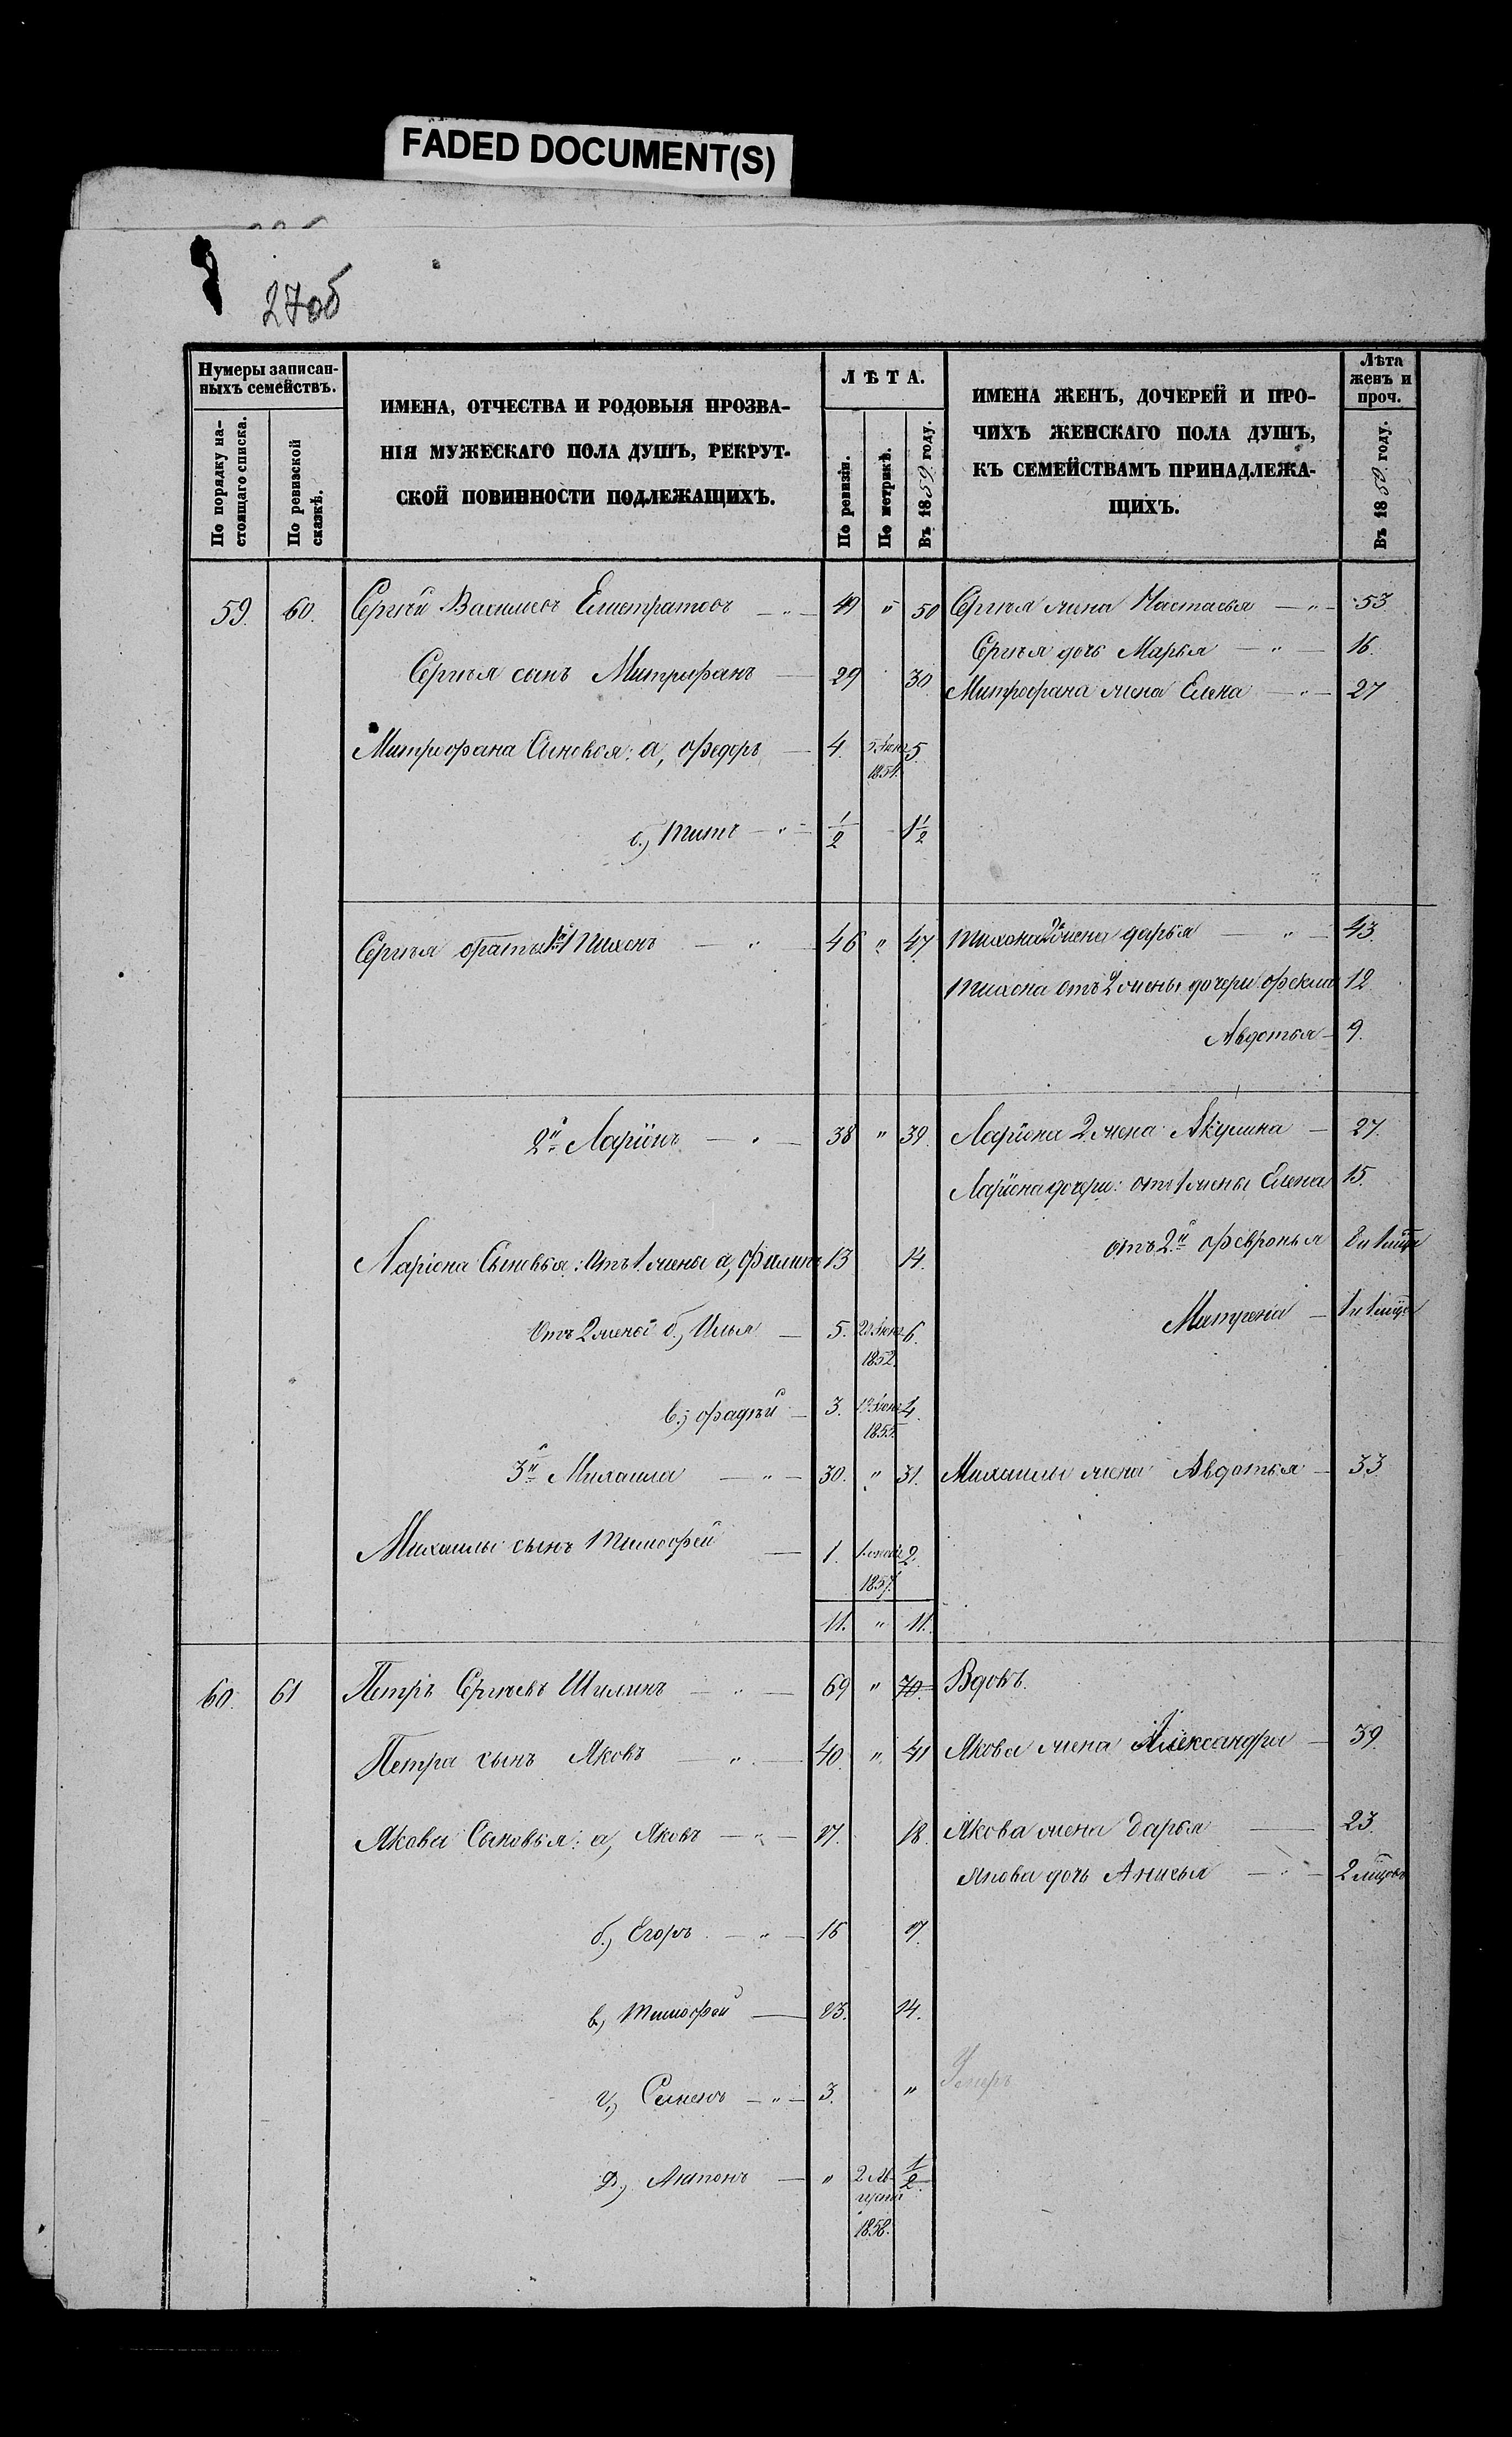 FADED DOCUMENT(S)
27об
Нумеры записан-
ныхъ семействъ.
По порядку на-
стоящаго списка.
По ревизской
сказкѣ.
ИМЕНА, ОТЧЕСТВА И РОДОВЫЯ ПРОЗВА-
НІЯ МУЖЕСКАГО ПОЛА ДУШЪ, РЕКРУТ-
СКОЙ ПОВИННОСТИ ПОДЛЕЖАЩИХЪ.
ЛѢТА.
По ревизіи.
По метрикѣ.
Въ 1859 году.
ИМЕНА ЖЕНЪ, ДОЧЕРЕЙ И ПРО-
ЧИХЪ ЖЕНСКАГО ПОЛА ДУШЪ,
КЪ СЕМЕЙСТВАМЪ ПРИНАДЛЕЖА-
ЩИХЪ.
Лѣта
женъ и
проч.
Въ 1859 году.
59. 60. Сергѣй Васильевъ Елистратовъ — " — 49 " 50 Сергѣя жена Настасья — " — 53
Сергѣя дочь Марья — " — 16.
Сергѣя сынъ Митрофанъ — 29 30 Митрофана жена Елена — " — 27
Митрофана Сыновья: а, Федоръ — 4. 5 Июня 5.
1854.
б,) Титъ — " — 1/2 1 1/2
Сергѣя братья 1й Тихонъ — " — 46 " 47 Тихона 2 жена Дарья — " — 43.
Тихона отъ 2 жены дочери Фекла 12
Авдотья — 9.
2й Ларіонъ — " — 38 " 39. Ларіона 2 жена Акулина — 27.
Ларіона дочери: отъ 1 жены Елена 15.
отъ 2й Февронья
Ларіона Сыновья: Отъ 1. жены а, Филипъ 13 14.
Матрена —
Отъ 2 жены б,) Илья — 5. 20 Июля 6.
1852.
в,) Фадѣй — 3. 4.
1855.
3й Михаила — " — 30. " 31. Михаилы жена Авдотья — 33
Михаилы сынъ Тимофей — 1. 2.
1857.
11. " 11.
60. 61 Петръ Сергѣевъ Шилинъ — " — 69 " 70. Вдовъ.
Петра сынъ Яковъ — " — 40. " 41 Якова жена Александра — 39.
Якова Сыновья: а, Яковъ — " — 17. 18. Якова жена Дарья — 23
Якова дочь Анисья — " — 2 мѣсяцовъ
б,) Егоръ — " — 16 17.
в,) Тимофей — 13. 14.
г,) Семенъ — " — 3. " Умеръ
д,) Антонъ — " 1/2.
1858.